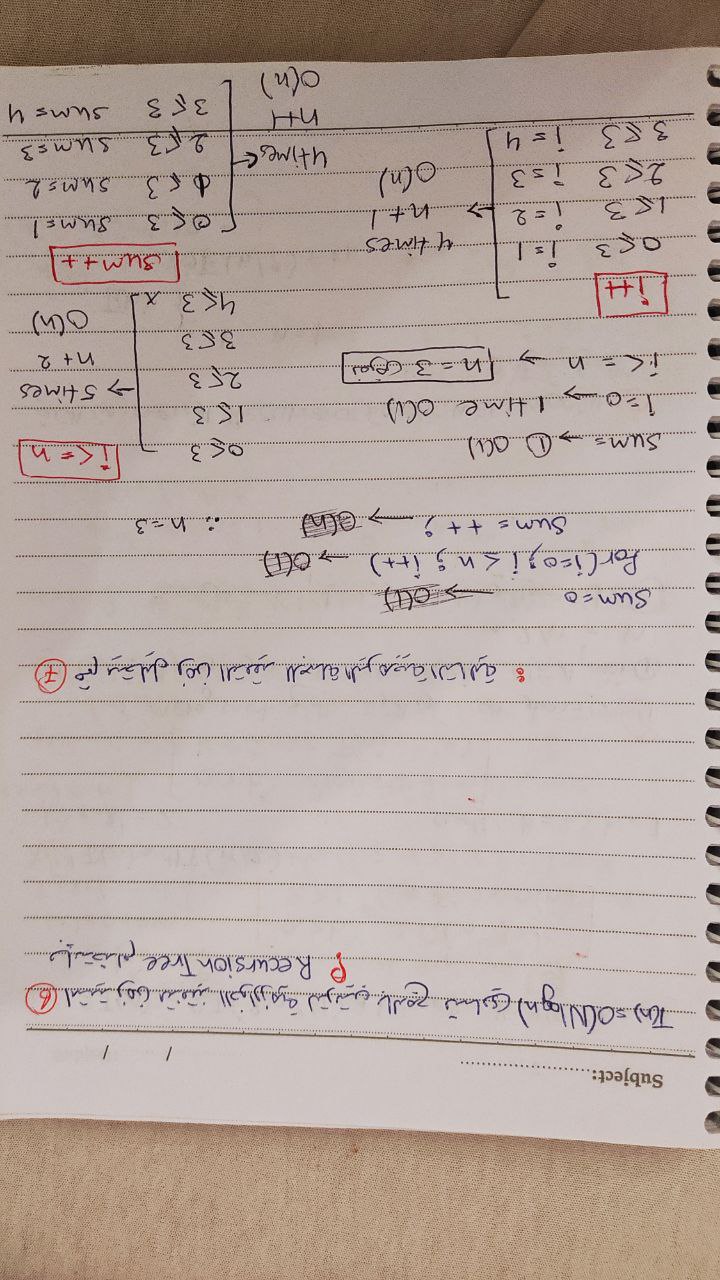 Subject:
/ /
6 اثبت زمن تنفيذ الخوارزمية لترتيب بالدمج تساوي T(n)=O(N log n)
باستخدام Recursion Tree ؟
7 قم بتحليل زمن التنفيذ للجملة البرمجية التالية :
Sum=0 → O(1)
For(i=0; i<n; i++) → O(1)
Sum=++; → O(n) ∴ n=3
Sum= → ① O(1)
i=0 → 1 time O(1)
i<=n → n=3
i<=n
0≤3
1≤3
2≤3
3≤3
4≤3 x
→ 5 times
n+2
O(n)
i++
0≤3 i=1
1≤3 i=2
2≤3 i=3
3≤3 i=4
→ 4 times
n+1
O(n)
Sum++
0≤3 Sum=1
1≤3 Sum=2
2≤3 Sum=3
3≤3 Sum=4
→ 4 times
n+1
O(n)